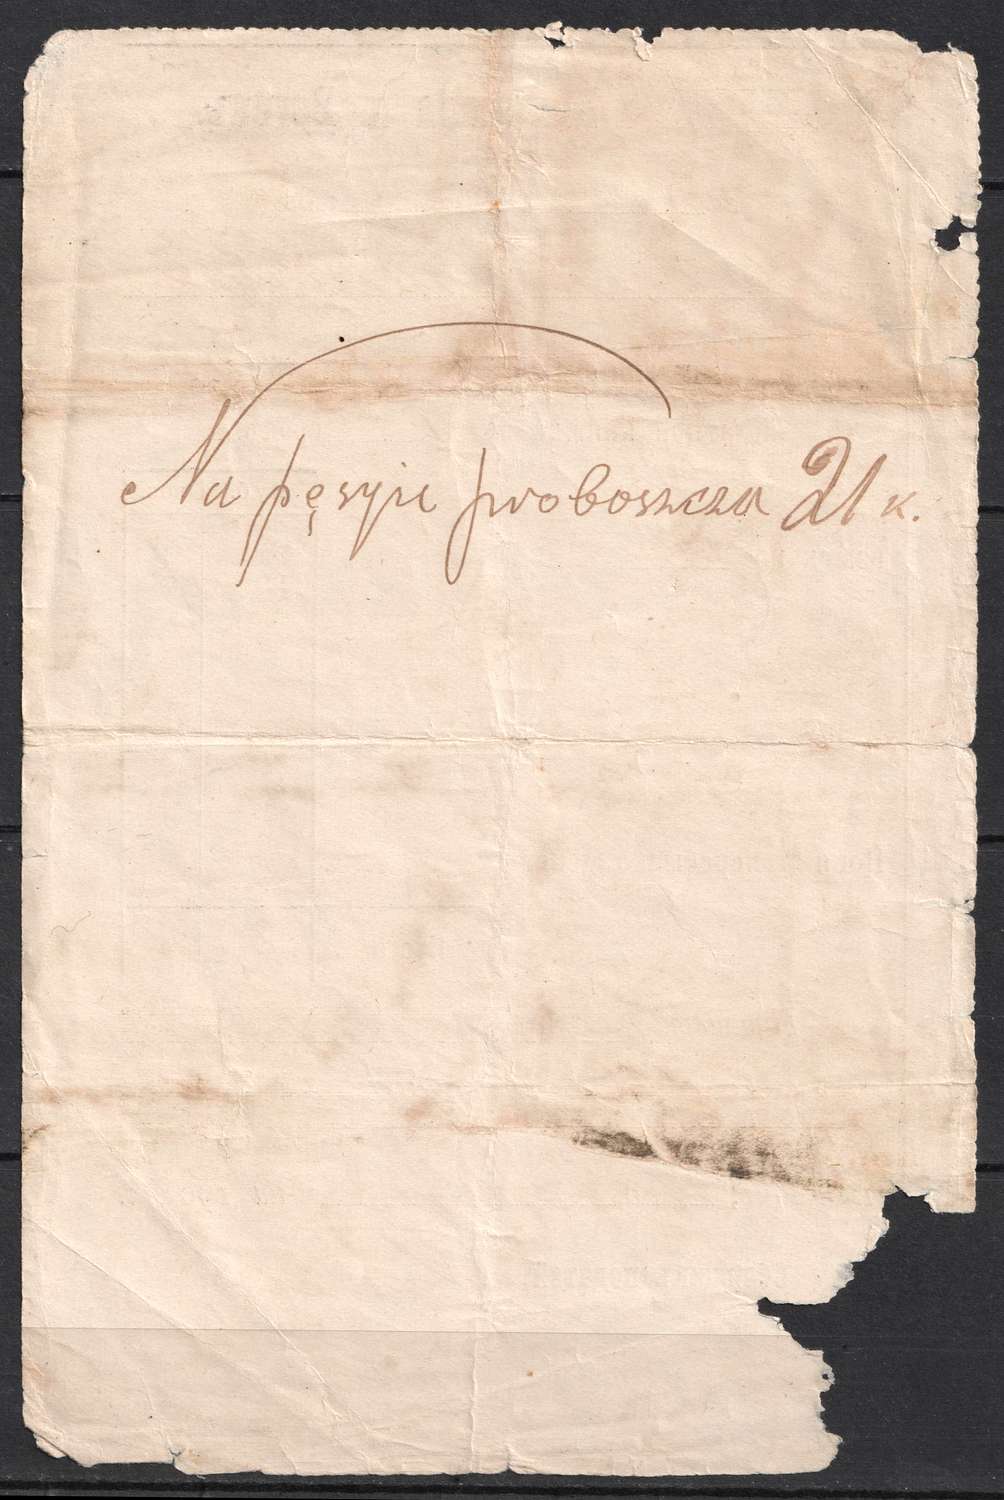 Na pęsyie proboszcza 21 k.